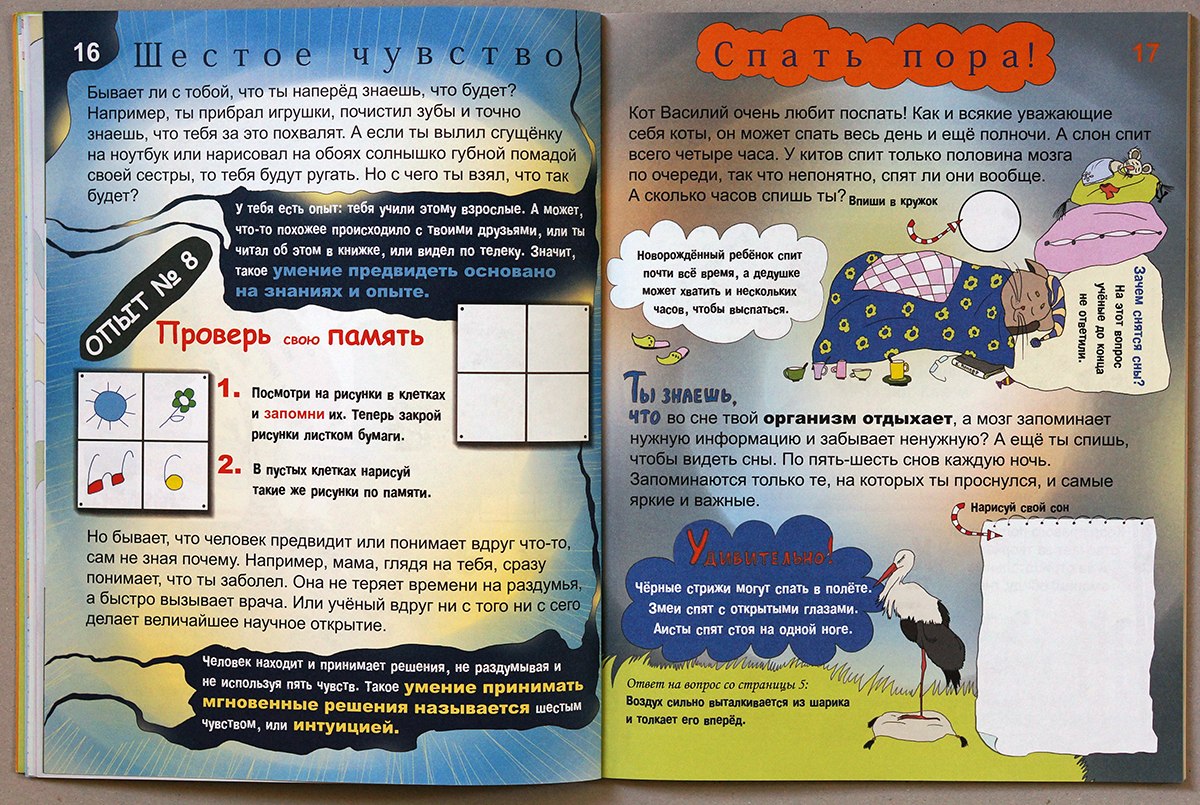 16
Шестое чувство
Бывает ли с тобой, что ты наперёд знаешь, что будет?
Например, ты прибрал игрушки, почистил зубы и точно
знаешь, что тебя за это похвалят. А если ты вылил сгущёнку
на ноутбук или нарисовал на обоях солнышко губной помадой
своей сестры, то тебя будут ругать. Но с чего ты взял, что так
будет?
У тебя есть опыт: тебя учили этому взрослые. А может,
что-то похожее происходило с твоими друзьями, или ты
читал об этом в книжке, или видел по телеку. Значит,
такое умение предвидеть основано
на знаниях и опыте.
ОПЫТ № 8
Проверь свою память
1. Посмотри на рисунки в клетках
и запомни их. Теперь закрой
рисунки листком бумаги.
2. В пустых клетках нарисуй
такие же рисунки по памяти.
Но бывает, что человек предвидит или понимает вдруг что-то,
сам не зная почему. Например, мама, глядя на тебя, сразу
понимает, что ты заболел. Она не теряет времени на раздумья,
а быстро вызывает врача. Или учёный вдруг ни с того ни с сего
делает величайшее научное открытие.
Человек находит и принимает решения, не раздумывая и
не используя пять чувств. Такое умение принимать
мгновенные решения называется шестым
чувством, или интуицией.
Спать пора!
17
Кот Василий очень любит поспать! Как и всякие уважающие
себя коты, он может спать весь день и ещё полночи. А слон спит
всего четыре часа. У китов спит только половина мозга
по очереди, так что непонятно, спят ли они вообще.
А сколько часов спишь ты? Впиши в кружок
Новорождённый ребёнок спит
почти всё время, а дедушке
может хватить и нескольких
часов, чтобы выспаться.
Зачем снятся сны?
На этот вопрос
учёные до конца
не ответили.
Ты знаешь,
что во сне твой организм отдыхает, а мозг запоминает
нужную информацию и забывает ненужную? А ещё ты спишь,
чтобы видеть сны. По пять-шесть снов каждую ночь.
Запоминаются только те, на которых ты проснулся, и самые
яркие и важные.
Нарисуй свой сон
Удивительно!
Чёрные стрижи могут спать в полёте.
Змеи спят с открытыми глазами.
Аисты спят стоя на одной ноге.
Ответ на вопрос со страницы 5:
Воздух сильно выталкивается из шарика
и толкает его вперёд.